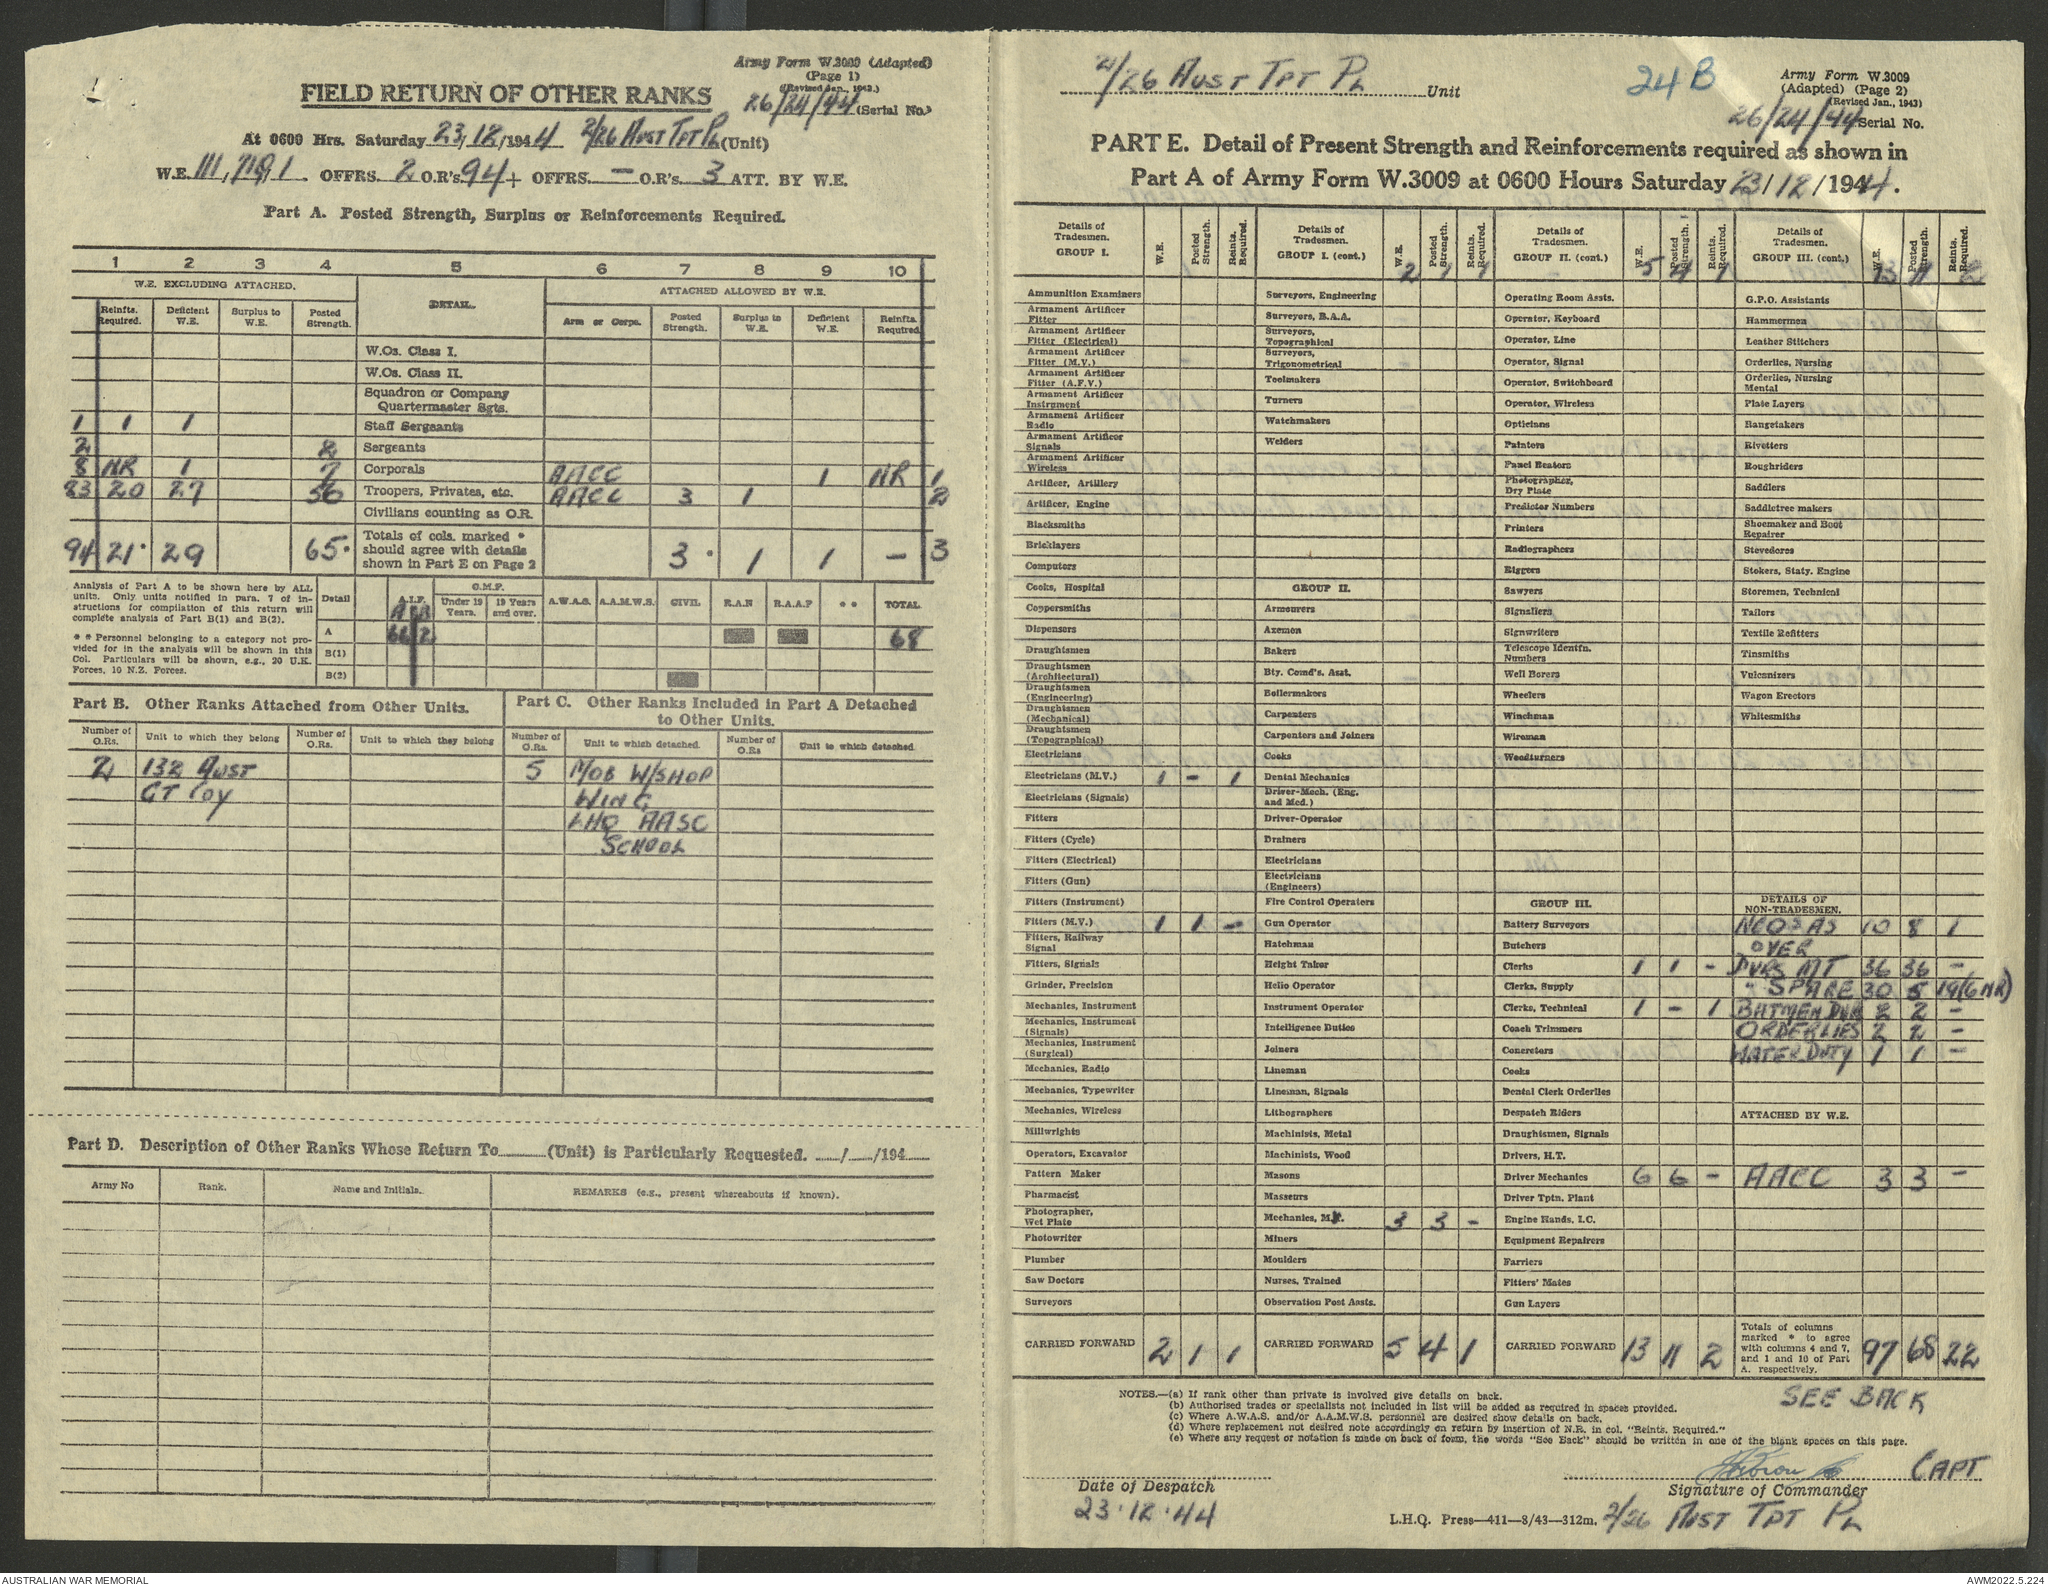 Army Form W.3009 (Adapted)
(Page 1)
(Revised Jan., 1943.)
FIELD RETURN OF OTHER RANKS
26/24/44 (Serial No.)
At 0600 Hrs. Saturday 23/12/1944 2/26 AUST TPT PL (Unit)
W.E. OFFRS. 2 O.R's. 94 + OFFRS. — O.R's. 3 ATT. BY W.E.
Part A. Posted Strength, Surplus or Reinforcements Required.
1 2 3 4 5 6 7 8 9 10
W.E. EXCLUDING ATTACHED. DETAIL. ATTACHED ALLOWED BY W.E.
Reinfts. Required. Deficient W.E. Surplus to W.E. Posted Strength. Arm or Corps. Posted Strength. Surplus to W.E. Deficient W.E. Reinfts. Required.
W.Os. Class I.
W.Os. Class II.
Squadron or Company Quartermaster Sgts.
1 1 1 Staff Sergeants
2 2 Sergeants
8 NR 1 7 Corporals AACC 1 NR 1
83 20 27 56 Troopers, Privates, etc. AACC 3 1 2
Civilians counting as O.R.
94 21* 29 65* Totals of cols. marked * should agree with details shown in Part E on Page 2 3* 1 1 — 3
Analysis of Part A to be shown here by ALL units. Only units notified in para. 7 of instructions for compilation of this return will complete analysis of Part B(1) and B(2).
* * Personnel belonging to a category not provided for in the analysis will be shown in this Col. Particulars will be shown, e.g., 20 U.K. Forces, 10 N.Z. Forces.
Detail A.I.F. C.M.F. Under 19 Years. 19 Years and over. A.W.A.S. A.A.M.W.S. CIVIL R.A.N R.A.A.F * * TOTAL
A B
A 66 2 68
B(1)
B(2)
Part B. Other Ranks Attached from Other Units.
Number of O.Rs. Unit to which they belong Number of O.Rs. Unit to which they belong
2 132 AUST
GT COY
Part C. Other Ranks Included in Part A Detached to Other Units.
Number of O.Rs. Unit to which detached. Number of O.Rs Unit to which detached.
5 MOB W/SHOP
WING
LHQ AASC
SCHOOL
Part D. Description of Other Ranks Whose Return To (Unit) is Particularly Requested. / /194
Army No Rank. Name and Initials. REMARKS (e.g., present whereabouts if known).
2/26 AUST TPT PL Unit
24B
Army Form W.3009
(Adapted) (Page 2)
(Revised Jan., 1943)
26/24/44 Serial No.
PART E. Detail of Present Strength and Reinforcements required as shown in
Part A of Army Form W.3009 at 0600 Hours Saturday 23/12/1944.
Details of Tradesmen. GROUP I. W.E. Posted Strength. Reinfts. Required.
Ammunition Examiners
Armament Artificer Fitter
Armament Artificer Fitter (Electrical)
Armament Artificer Fitter (M.V.)
Armament Artificer Fitter (A.F.V.)
Armament Artificer Instrument
Armament Artificer Radio
Armament Artificer Signals
Armament Artificer Wireless
Artificer, Artillery
Artificer, Engine
Blacksmiths
Bricklayers
Computers
Cooks, Hospital
Coppersmiths
Dispensers
Draughtsmen
Draughtsmen (Architectural)
Draughtsmen (Engineering)
Draughtsmen (Mechanical)
Draughtsmen (Topographical)
Electricians
Electricians (M.V.) 1 - 1
Electricians (Signals)
Fitters
Fitters (Cycle)
Fitters (Electrical)
Fitters (Gun)
Fitters (Instrument)
Fitters (M.V.) 1 1 -
Fitters, Railway Signal
Fitters, Signals
Grinder, Precision
Mechanics, Instrument
Mechanics, Instrument (Signals)
Mechanics, Instrument (Surgical)
Mechanics, Radio
Mechanics, Typewriter
Mechanics, Wireless
Millwrights
Operators, Excavator
Pattern Maker
Pharmacist
Photographer, Wet Plate
Photowriter
Plumber
Saw Doctors
Surveyors
CARRIED FORWARD 2 1 1
Details of Tradesmen. GROUP I. (cont.) W.E. Posted Strength. Reinfts. Required.
2 1 1
Surveyors, Engineering
Surveyors, R.A.A.
Surveyors, Topographical
Surveyors, Trigonometrical
Toolmakers
Turners
Watchmakers
Welders
GROUP II.
Armourers
Axemen
Bakers
Bty. Comd's. Asst.
Boilermakers
Carpenters
Carpenters and Joiners
Cooks
Dental Mechanics
Driver-Mech. (Eng. and Med.)
Driver-Operator
Drainers
Electricians
Electricians (Engineers)
Fire Control Operators
Gun Operator
Hatchman
Height Taker
Helio Operator
Instrument Operator
Intelligence Duties
Joiners
Lineman
Lineman, Signals
Lithographers
Machinists, Metal
Machinists, Wood
Masons
Masseurs
Mechanics, M.V. 3 3 -
Miners
Moulders
Nurses, Trained
Observation Post Assts.
CARRIED FORWARD 5 4 1
Details of Tradesmen. GROUP II. (cont.) W.E. Posted Strength. Reinfts. Required.
5 4 1
Operating Room Assts.
Operator, Keyboard
Operator, Line
Operator, Signal
Operator, Switchboard
Operator, Wireless
Opticians
Painters
Panel Beaters
Photographer, Dry Plate
Predictor Numbers
Printers
Radiographers
Riggers
Sawyers
Signallers
Signwriters
Telescope Identfn. Numbers
Well Borers
Wheelers
Winchman
Wireman
Woodturners
GROUP III.
Battery Surveyors
Butchers
Clerks 1 1 -
Clerks, Supply
Clerks, Technical 1 - 1
Coach Trimmers
Concretors
Cooks
Dental Clerk Orderlies
Despatch Riders
Draughtsmen, Signals
Drivers, H.T.
Driver Mechanics 6 6 -
Driver Tptn. Plant
Engine Hands, I.C.
Equipment Repairers
Farriers
Fitters' Mates
Gun Layers
CARRIED FORWARD 13 11 2
Details of Tradesmen. GROUP III. (cont.) W.E. Posted Strength. Reinfts. Required.
13 11 2
G.P.O. Assistants
Hammermen
Leather Stitchers
Orderlies, Nursing
Orderlies, Nursing Mental
Plate Layers
Rangetakers
Rivetters
Roughriders
Saddlers
Saddletree makers
Shoemaker and Boot Repairer
Stevedores
Stokers, Staty. Engine
Storemen, Technical
Tailors
Textile Refitters
Tinsmiths
Vulcanizers
Wagon Erectors
Whitesmiths
DETAILS OF NON-TRADESMEN.
NCO3 AS 10 8 1
OVER
DVRS MT 36 36 -
" SPARE 30 5 19(6 NR)
BATMEN DVR 2 2 -
ORDERLIES 2 2 -
WATER DUTY 1 1 -
ATTACHED BY W.E.
AACC 3 3 -
Totals of columns marked * to agree with columns 4 and 7, and 1 and 10 of Part A. respectively. 97 68 22
SEE BACK
NOTES.—(a) If rank other than private is involved give details on back.
(b) Authorised trades or specialists not included in list will be added as required in spaces provided.
(c) Where A.W.A.S. and/or A.A.M.W.S. personnel are desired show details on back.
(d) Where replacement not desired note accordingly on return by insertion of N.R. in col. "Reints. Required."
(e) Where any request or notation is made on back of form, the words "See Back" should be written in one of the blank spaces on this page.
CAPT
Date of Despatch
23.12.44
Signature of Commander
L.H.Q. Press—411—8/43—312m.
2/26 AUST TPT PL
AUSTRALIAN WAR MEMORIAL
AWM2022.5.224